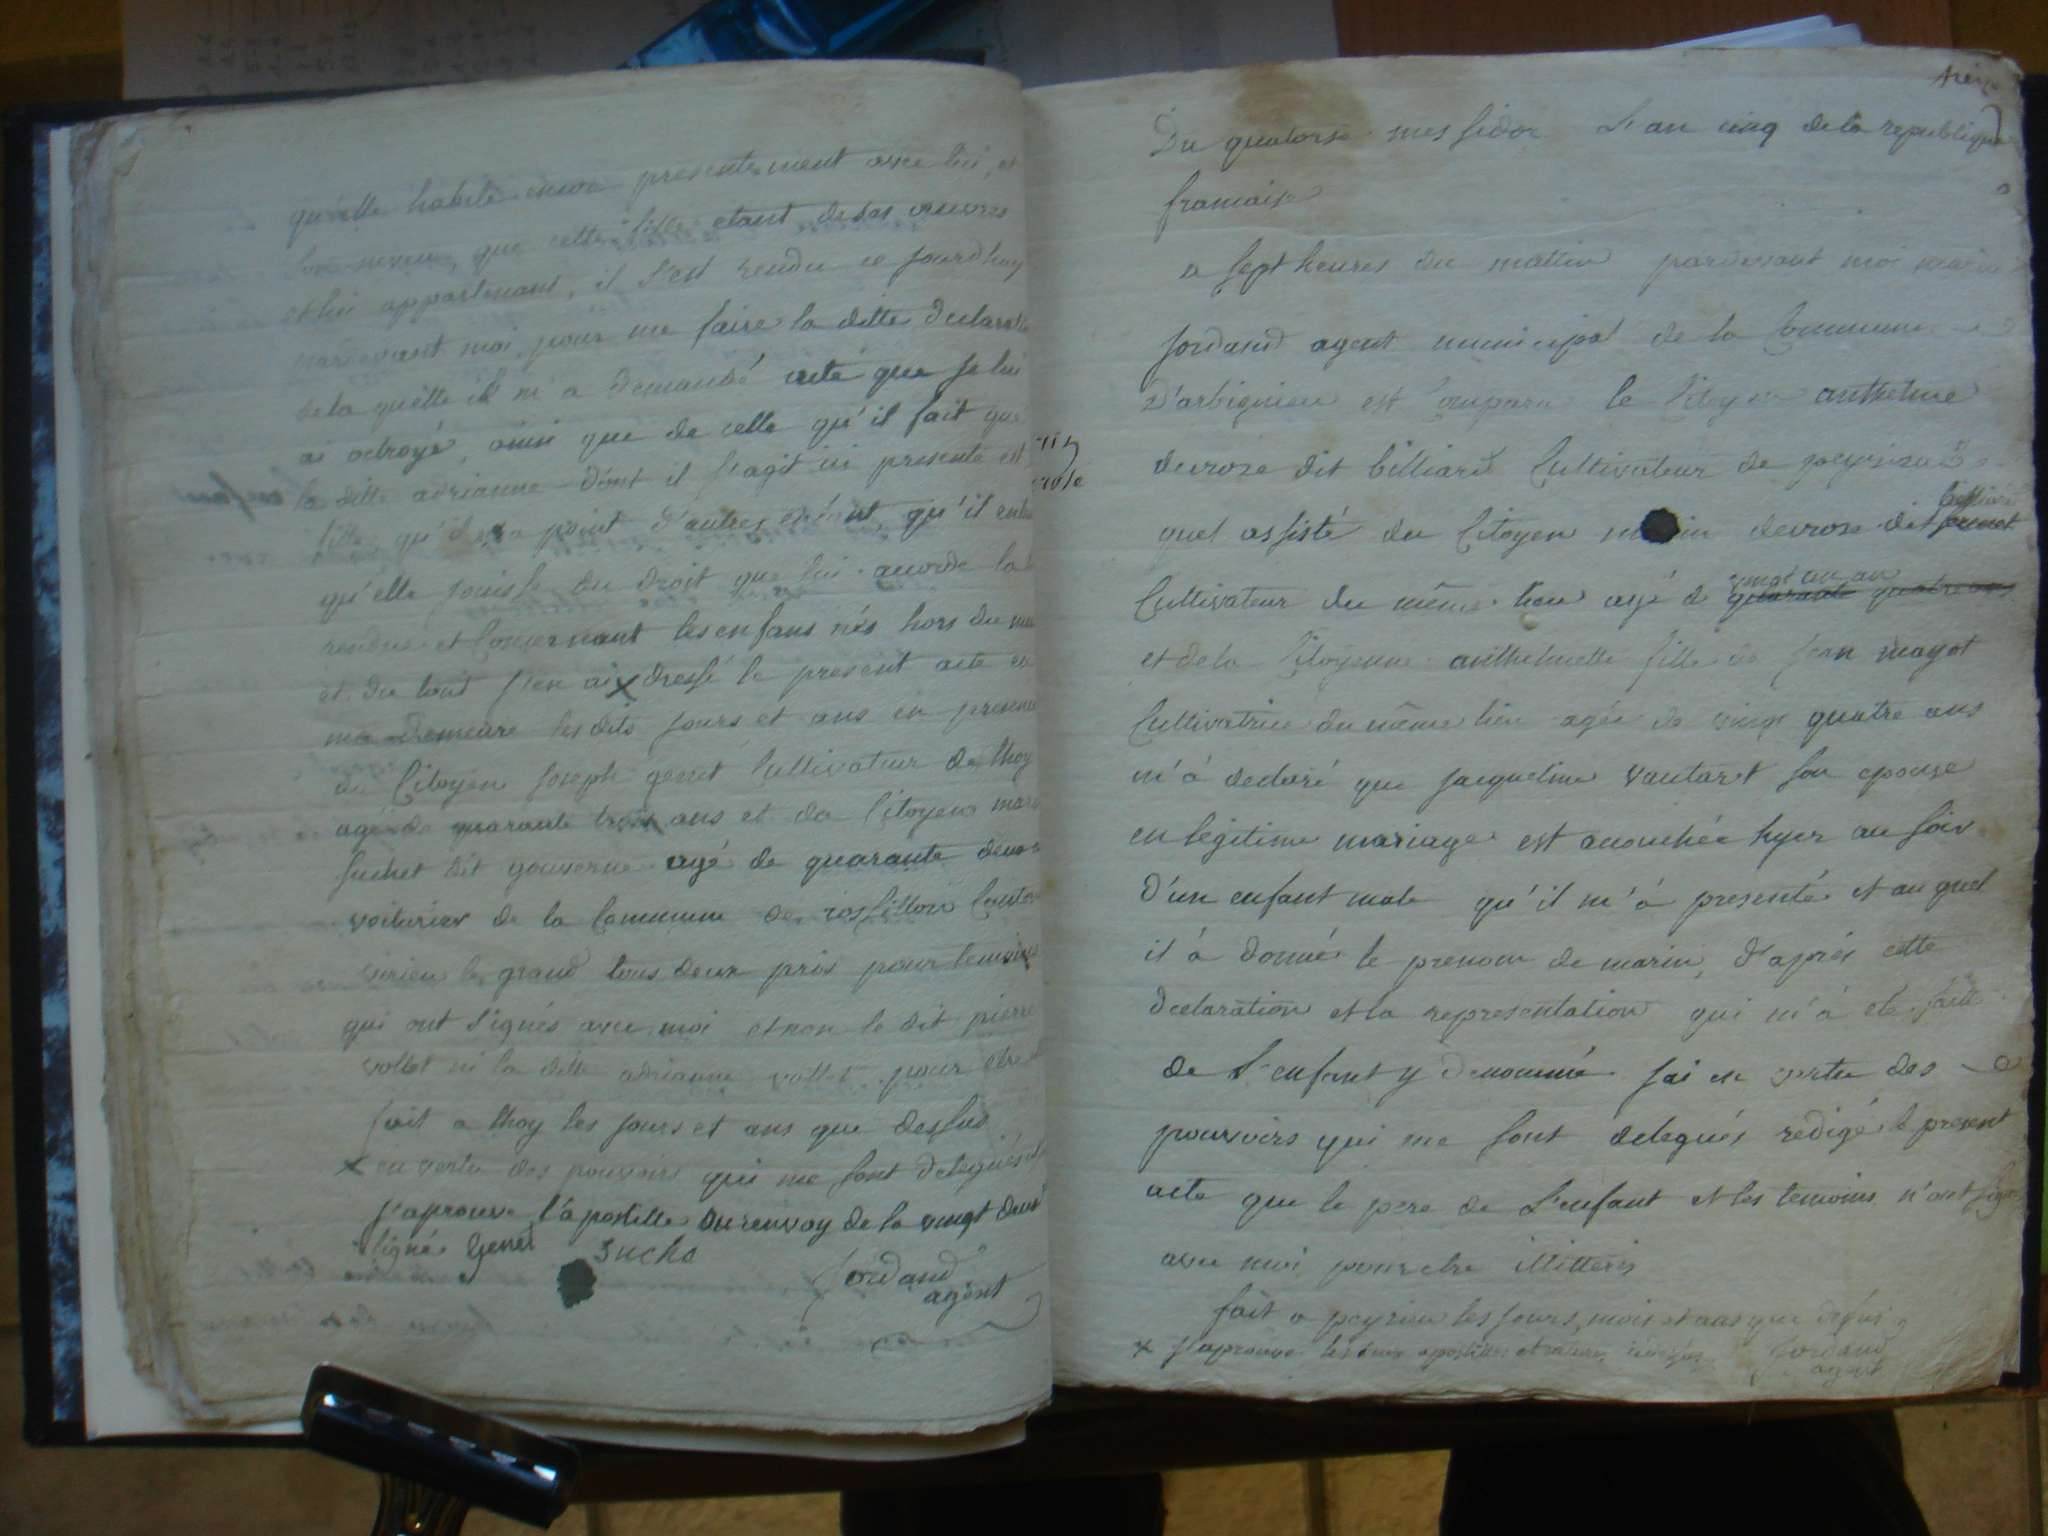 qu'elle habite encore presentement avec lui, et
que cette fille etant de ses œuvres
et lui appartenant, il s'est rendu ce jourd'huy
pardevant moi, pour me faire la ditte declarat
de la quelle il m'a demandé acte que je lui
ai octroyé, ainsi que de celle qu'il fait que
la ditte adrianne dont il s'agit ici presente est
fille, qu'il n'a point d'autres enfant, qu'il
qu'elle jouisse du droit que lui accorde la
rendue et concernant les enfans nés hors du
et du tout j'en ai x dressé le present acte en
ma demeure les dits jours et ans en presence
du Citoyen Joseph genet Cultivateur de thoy
agé de quarante trois ans et du Citoyen
suchet dit gouverne agé de quarante deux
voiturier de la Commune de rossillon Canton
virieu le grand tous deux pris pour temoins
qui ont signés avec moi et non le dit pierre
vollet ni la ditte adrianne vollet pour etre
fait a thoy les jours et ans que dessus
x en vertu des pouvoirs qui me sont delegués
J'aprouve l'apostille du renvoy de la vingt deux
signé Genet Suche
Jordand
agent
Du quatorse messidor L'an cinq de la republique
francaise
a sept heures du mattin pardevant moi
Jordand agent municipal de la Commune
D'arbignieu est Comparu le Citoyen anthelme
devroze dit billiard Cultivateur de peyrieu
quel assisté du Citoyen devroze dit
Cultivateur du même lieu agé de quarante quatre ans
et de la Citoyenne anthelmette fille de jean mayot
Cultivatrice du même lieu agée de vingt quatre ans
m'à declaré que jacqueline vautaret son epouse
en legitime mariage est acouchée hyer au soir
D'un enfant male qu'il m'à presenté et au quel
il à donné le prenom de marin, D'aprés cette
declaration et la representation qui m'à eté faite
de L'enfant y denommé jai en vertu des
pouvoirs qui me sont delegués redigé le present
acte que le pere de L'enfant et les temoins n'ont signé
avec moi pour etre illitterés
fait a peyrieu les jours, mois et ans que dessus
x J'aprouve les deux apostilles Jordand
agent